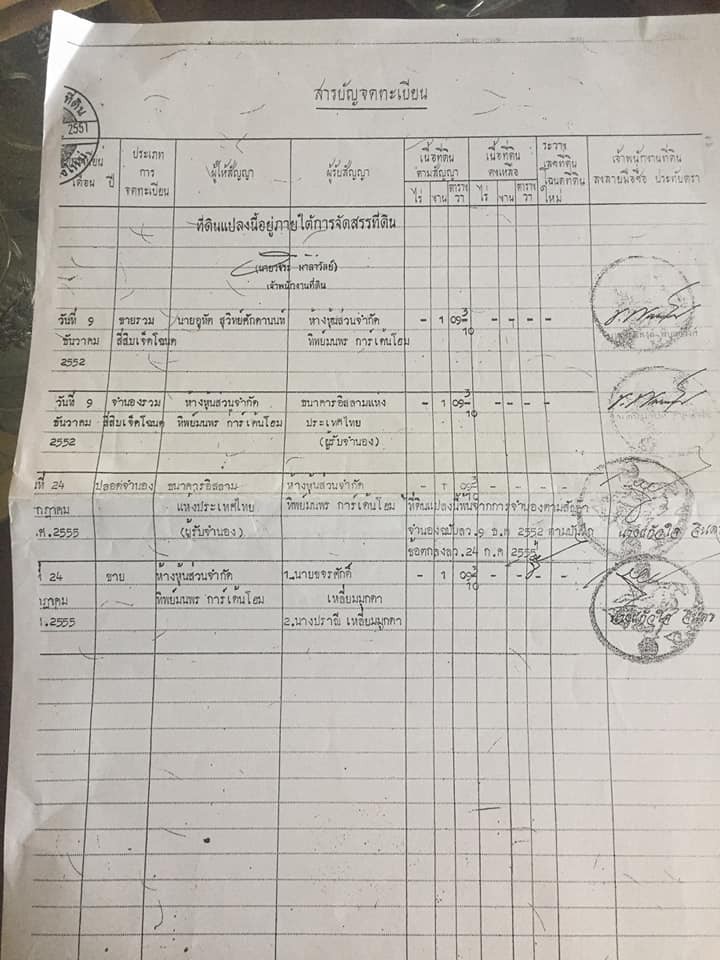 สารบัญจดทะเบียน
ที่ดิน
2551
เดือน ปี
ประเภท
การ
จดทะเบียน
ผู้ให้สัญญา
ผู้รับสัญญา
เนื้อที่ดิน
ตามสัญญา
ไร่ งาน ตาราง
วา
เนื้อที่ดิน
คงเหลือ
ไร่ งาน ตาราง
วา
ระวาง
เลขที่ดิน
โฉนดที่ดิน
ใหม่
เจ้าพนักงานที่ดิน
ลงลายมือชื่อ ประทับตรา
ที่ดินแปลงนี้อยู่ภายใต้การจัดสรรที่ดิน
เจ้าพนักงานที่ดิน
วันที่ 9 ขายรวม นายอุทัด สุวิทย์ศักดานนท์ ห้างหุ้นส่วนจำกัด - 1 09 3/10 - - - -
ธันวาคม สี่สิบเจ็ดโฉนด ทิพย์มนพร การ์เด้นโฮม
2552
วันที่ 9 จำนองรวม ห้างหุ้นส่วนจำกัด ธนาคารอิสลามแห่ง - 1 09 3/10 - - - -
ธันวาคม สี่สิบเจ็ดโฉนด ทิพย์มนพร การ์เด้นโฮม ประเทศไทย
2552 (ผู้รับจำนอง)
ที่ 24 ปลอดจำนอง ธนาคารอิสลาม ห้างหุ้นส่วนจำกัด - 1 09 3/10 - - - -
กฎาคม แห่งประเทศไทย ทิพย์มนพร การ์เด้นโฮม ที่ดินแปลงนี้พ้นจากการจำนองตามสัญญา
ศ.2555 (ผู้รับจำนอง) จำนองฉบับลว.9 ธ.ค 2552 ตามบันทึก
ข้อตกลงลว.24 ก.ค 2555
ที่ 24 ขาย ห้างหุ้นส่วนจำกัด 1.นายขจรศักดิ์ - 1 09 3/10 - - - -
กฎาคม ทิพย์มนพร การ์เด้นโฮม เหลี่ยมมุกดา
.2555 2.นางปราณี เหลี่ยมมุกดา